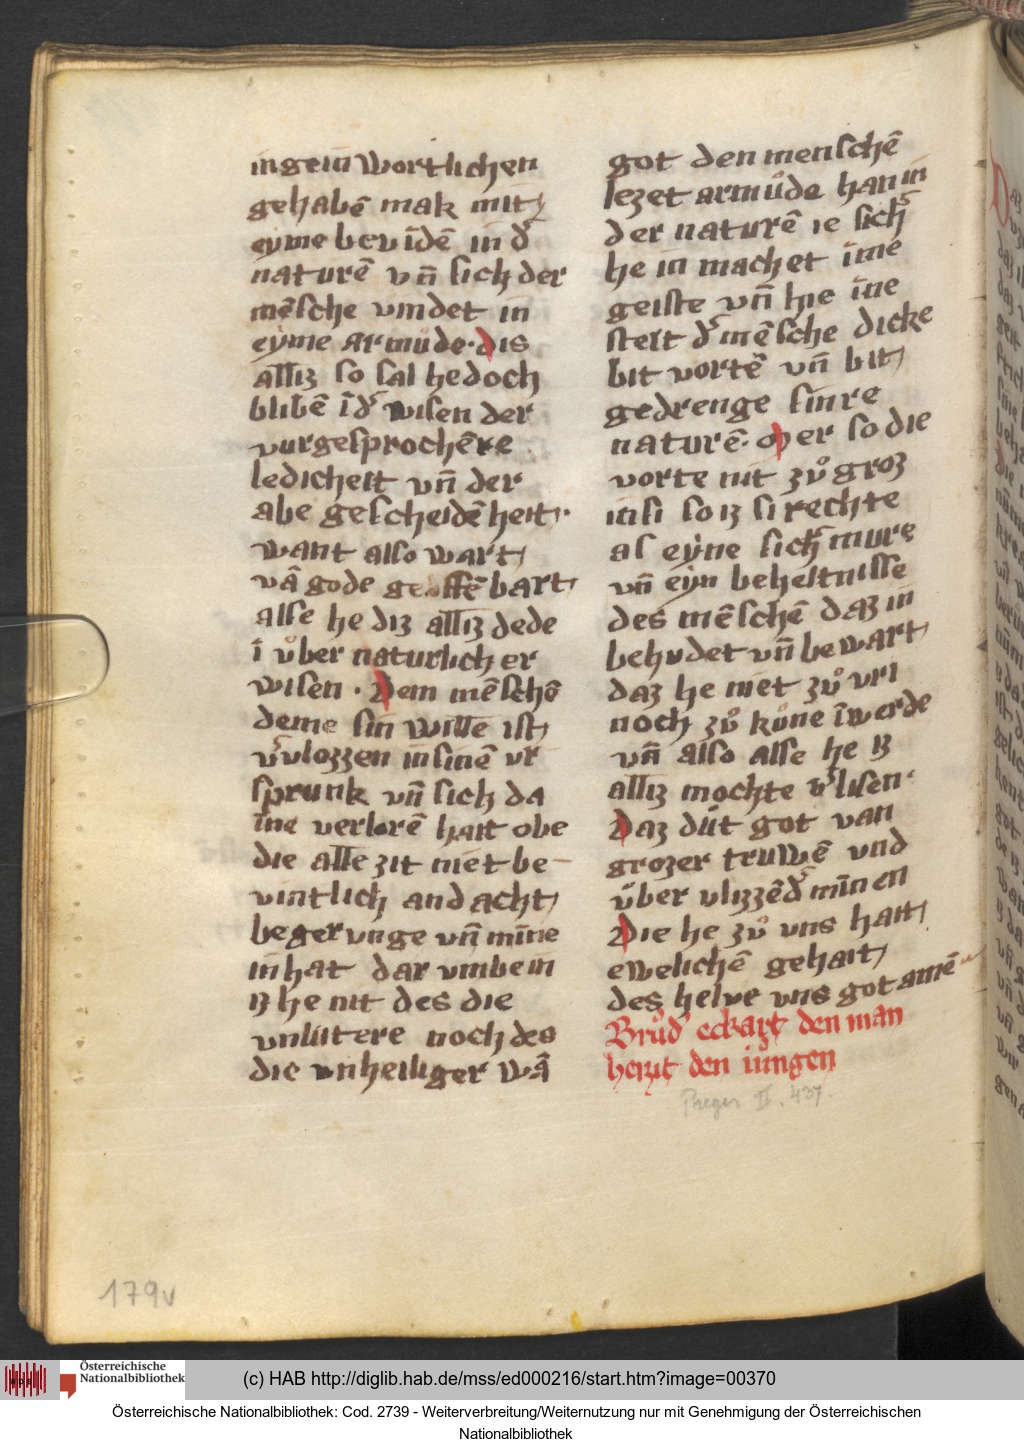 in gein wortlichen
gehabē mak mit
eyme bevīdē in d̕
naturē vn̄ sich der
mēsche vindet in
eyme armůde · dis
alliz so sal he doch
blibē ī d̕ wisen der
vurgesprochēre
ledicheit vn̄ der
abe gescheidē heit ·
want also wart
vā gode geoffēbart
alse he diz alliz dede
ī v̊ber naturlicher
wisen · Dem mēschē
deme sin wille ist
v̕vlozzen in sinē vr
sprunk vn̄ sich da
īne verlorē hait obe
die alle zit niet be
vintlich andacht
begervnge vn̄ mīne
in hat dar vmbe in
iz he nit des die
vnlutere noch des
die vnheiliger wā
got den menschē
lezet armůde han in
der naturē ie sich̕
he in machet īme
geiste vn̄ hie īne
stelt d̕ mēsche dicke
bit vortē vn̄ bit
gedrenge sinre
naturē · Mer so die
vorte nit zů groz
in si so iz si rechte
al eyne sich̕ mure
vn̄ eyn beheltnisse
des mēschē daz in
behudet vn̄ bewart
daz he niet zů vri
noch zů kůne īwerde
vn̄ also alse he iz
alliz mochte v̕lisen ·
Daz důt got van
grozer truwē vnd
v̊ber vlizzēd̕ minnen
Die he zů uns hait
ewelichē gehait
des helve vns got amē
Brůd̕ eckart den man
heizit den iungen
Preger II. 437.
179v
Österreichische
Nationalbibliothek
(c) HAB http://diglib.hab.de/mss/ed000216/start.htm?image=00370
Österreichische Nationalbibliothek: Cod. 2739 - Weiterverbreitung/Weiternutzung nur mit Genehmigung der Österreichischen
Nationalbibliothek